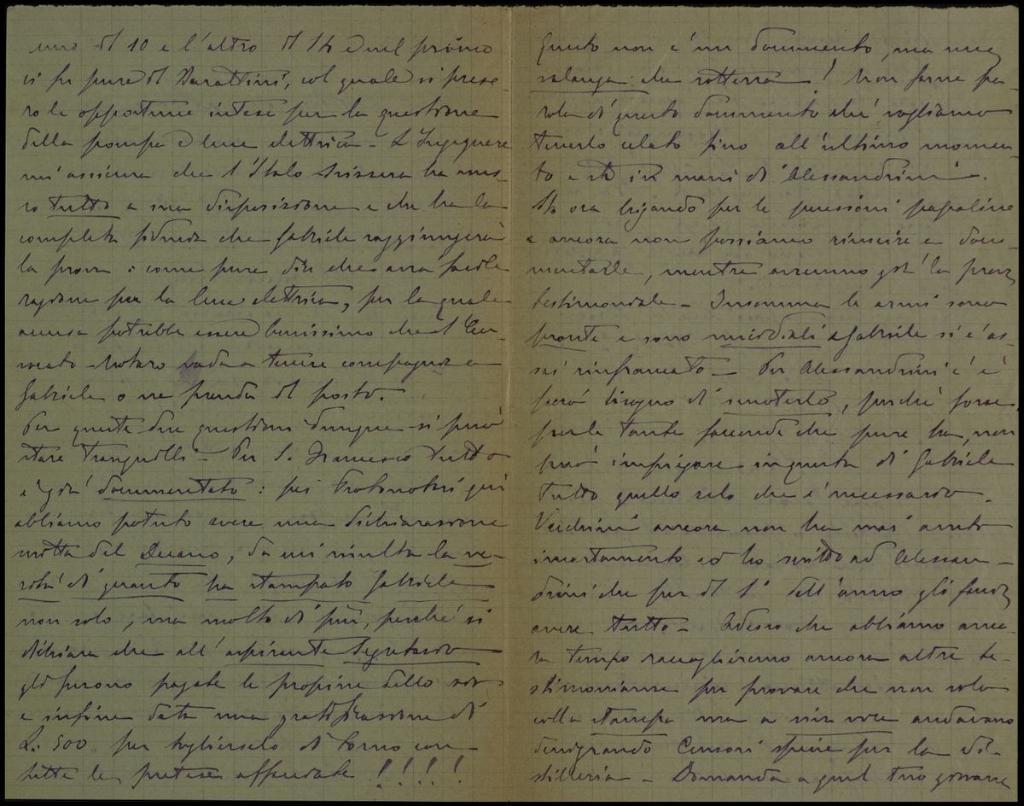 uno il 10 e l'altro il 14 e nel primo
vi fu pure il Barattini, col quale si prese
ro le opportune intese per la questione
della pompa e luce elettrica - L'Ingegnere
mi assicura che l'Italo Svizzera ha mes
so tutto a sua disposizione e che ha la
completa fiducia che Gabriele raggiungerà
la prova: come pure dice che avrà facile
ragione per la luce elettrica, per la quale
accusa potrebbe essere benissimo che l'
Notaro vada a tenere compagnia a
Gabriele o ne prenda il posto.
Per queste due questioni dunque si può
stare tranquilli - Per S. Francesco tutto
è già documentato: pei Protonotari poi
abbiamo potuto avere una dichiarazione
scritta del Decano, da cui risulta la ve-
rità di quanto ha stampato Gabriele
non solo, ma molto di più, perché si
dichiara che all'aspirante Segretario
gli furono pagate le propine dello
e infine data una gratificazione di
L. 500 per toglierselo di torno con
tutte le pretese affacciate !!!!
Questo non è un documento, ma una
valanga che sotterra! Non farne pa
rola di questo documento che vogliamo
tenerlo celato fino all'ultimo momen
to e sta in mani di Alessandrini.
Sta ora brigando per le pensioni papaline
e ancora non possiamo riuscire a docu
mentarle, mentre avremmo già la prova
testimoniale - Insomma le armi sono
pronte e sono micidiali e Gabriele si è as-
sai rinfrancato - Per Alessandrini c'è
però bisogno di scuoterlo, perché forse
per le tante faccende che pure ha, non
può impiegare in questa di Gabriele
tutto quello zelo che è necessario.
Vecchini ancora non ha mai avuto
incartamento ed ho scritto ad Alessan-
drini che per il 1° dell'anno gli faccia
avere tutto - Adesso che abbiamo anco
ra tempo raccoglieremo ancora altre te-
stimonianze per provare che non solo
colla stampa ma a viva voce andavano
denigrando Censori specie per la di-
stilleria - Domanda a quel tuo giovane